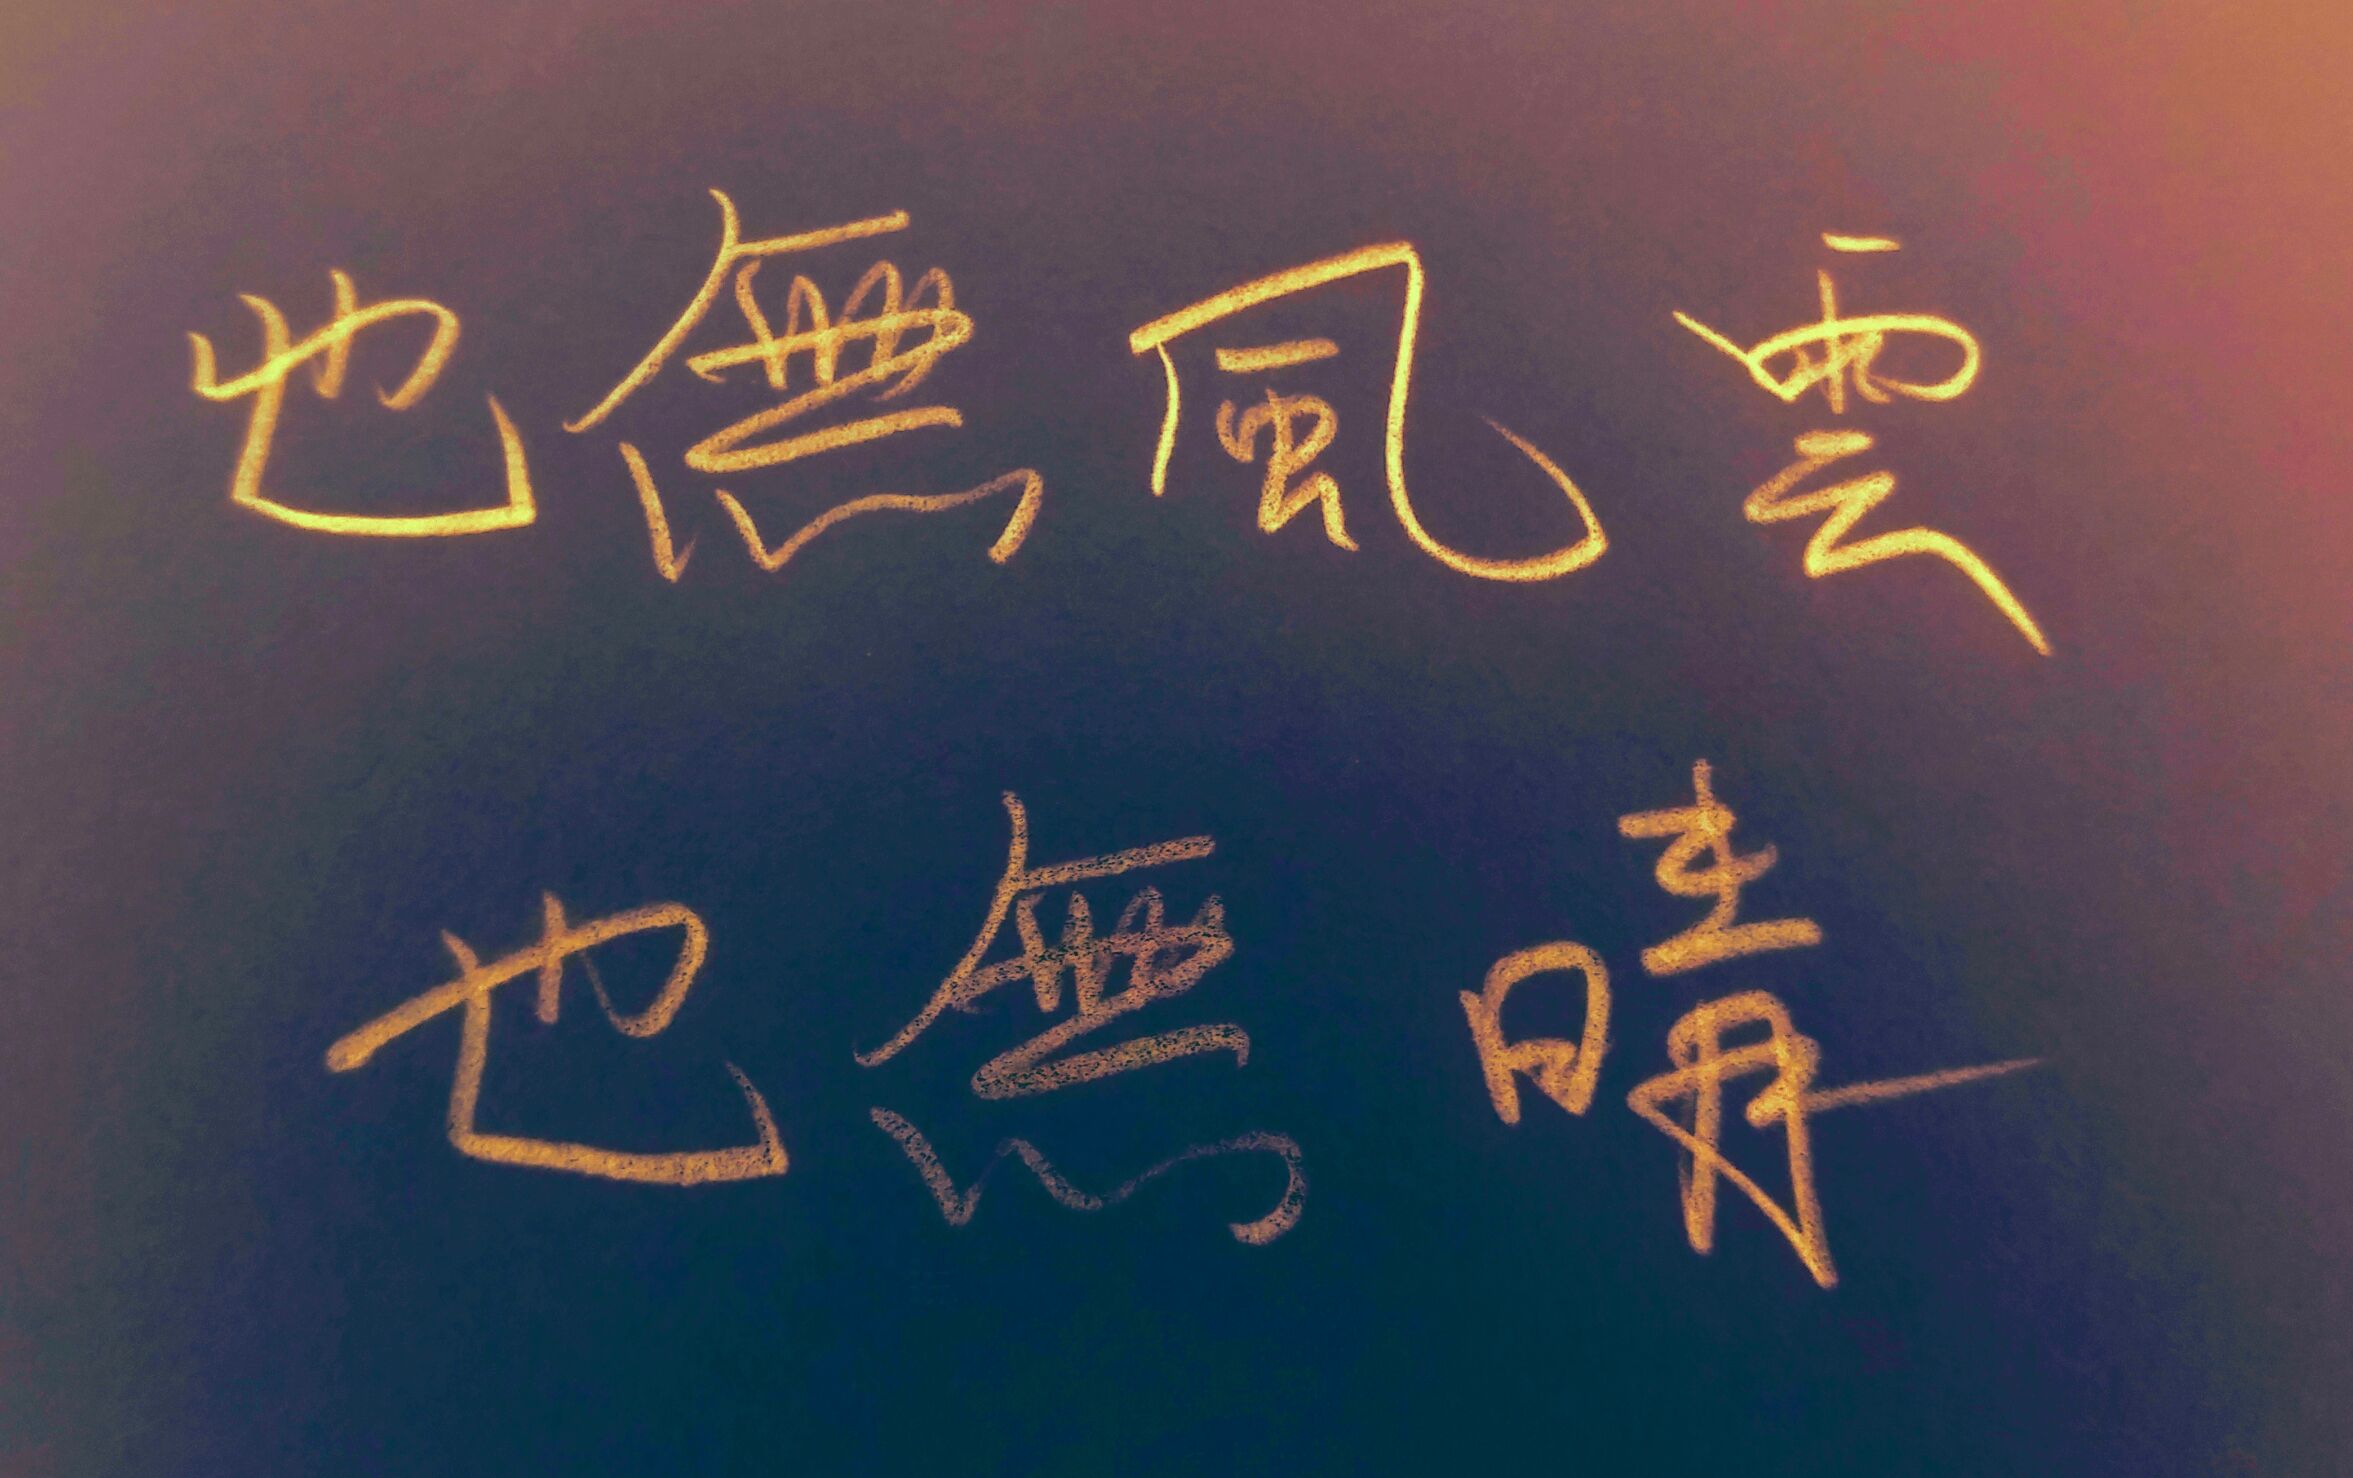 也無風雲
也無晴